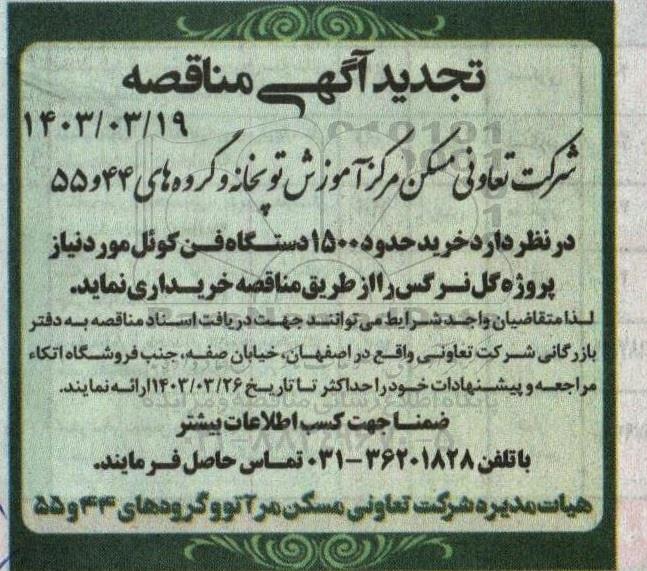 تجدید آگهی مناقصه
۱۴۰۳/۰۳/۱۹
شرکت تعاونی مسکن مرکز آموزش توپخانه و گروه های ۴۴ و ۵۵
در نظر دارد خرید حدود ۱۵۰۰ دستگاه فن کوئل مورد نیاز
پروژه گل نرگس را از طریق مناقصه خریداری نماید.
لذا متقاضیان واجد شرایط می توانند جهت دریافت اسناد مناقصه به دفتر
بازرگانی شرکت تعاونی واقع در اصفهان، خیابان صفه، جنب فروشگاه اتکاء
مراجعه و پیشنهادات خود را حداکثر تا تاریخ ۱۴۰۳/۰۳/۲۶ ارائه نمایند.
ضمنا جهت کسب اطلاعات بیشتر
با تلفن ۳۶۲۰۱۸۲۸-۰۳۱ تماس حاصل فرمایند.
هیات مدیره شرکت تعاونی مسکن مرآتو و گروه‌های ۴۴ و ۵۵